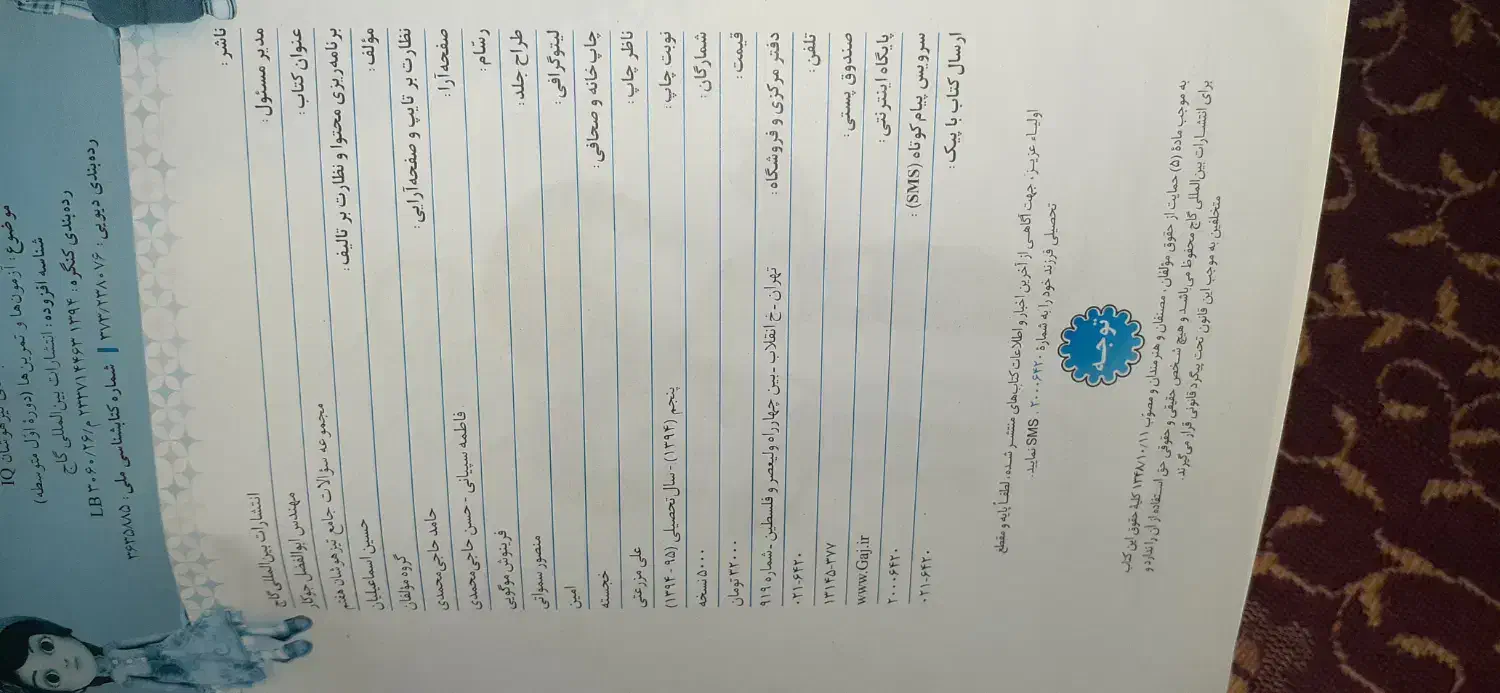 موضوع: آزمون‌ها و تمرین‌ها (دورهٔ اوّل متوسطه)
شناسه افزوده: انتشارات بین‌المللی گاج
رده‌بندی کنگره: ۱۳۹۴ ۲۳۳۷۱۴۴۶۳م/۲۶/۳۰۶۰ LB
رده‌بندی دیویی: ۳۷۳/۲۳۸۰۷۶ | شماره کتابشناسی ملی: ۳۶۳۵۸۸۱۵
ناشر: انتشارات بین‌المللی گاج
مدیر مسئول: مهندس ابوالفضل جوکار
عنوان کتاب: مجموعه سؤالات جامع تیزهوشان هفتم
برنامه‌ریزی محتوا و نظارت بر تالیف: حسین اسماعیلیان
مؤلف: گروه مؤلفان
نظارت بر تایپ و صفحه‌آرایی: حامد حاجی‌محمدی
صفحه‌آرا: فاطمه سینائی - حسن حاجی‌محمدی
رسّام: فرینوش موگویی
طراح جلد: منصور سمواتی
لیتوگرافی: امین
چاپ‌خانه و صحافی: خجسته
ناظر چاپ: علی مزرعتی
نوبت چاپ: پنجم (۱۳۹۴) - سال تحصیلی (۹۵-۱۳۹۴)
شمارگان: ۵۰۰۰ نسخه
قیمت: ۳۲۰۰۰ تومان
دفتر مرکزی و فروشگاه: تهران - خ انقلاب - بین چهارراه ولیعصر و فلسطین - شماره ۹۱۹
تلفن: ۰۲۱-۶۴۲۰
صندوق پستی: ۱۳۱۴۵-۳۷۷
پایگاه اینترنتی: www.Gaj.ir
سرویس پیام کوتاه (SMS): ۲۰۰۰۶۴۲۰
ارسال کتاب با پیک: ۰۲۱-۶۴۲۰
اولیاء عزیز، جهت آگاهی از آخرین اخبار و اطلاعات کتاب‌های منتشر شده، لطفاً پایه و مقطع
تحصیلی فرزند خود را به شمارهٔ ۲۰۰۰۶۴۲۰، SMS نمایید.
توجه
به موجب مادهٔ (۵) حمایت از حقوق مؤلفان، مصنفان و هنرمندان و مصوّب ۱۳۴۸/۱۰/۱۱ کلیهٔ حقوق این کتاب
برای انتشارات بین‌المللی گاج محفوظ می‌باشد و هیچ شخص حقیقی و حقوقی حق استفاده از آن را ندارد و
متخلفین به موجب این قانون تحت پیگرد قانونی قرار می‌گیرند.